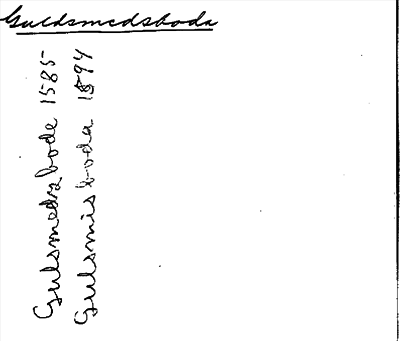 Guldsmedsboda
Gulsmedzbode 1585
Gulsmisboda 1594